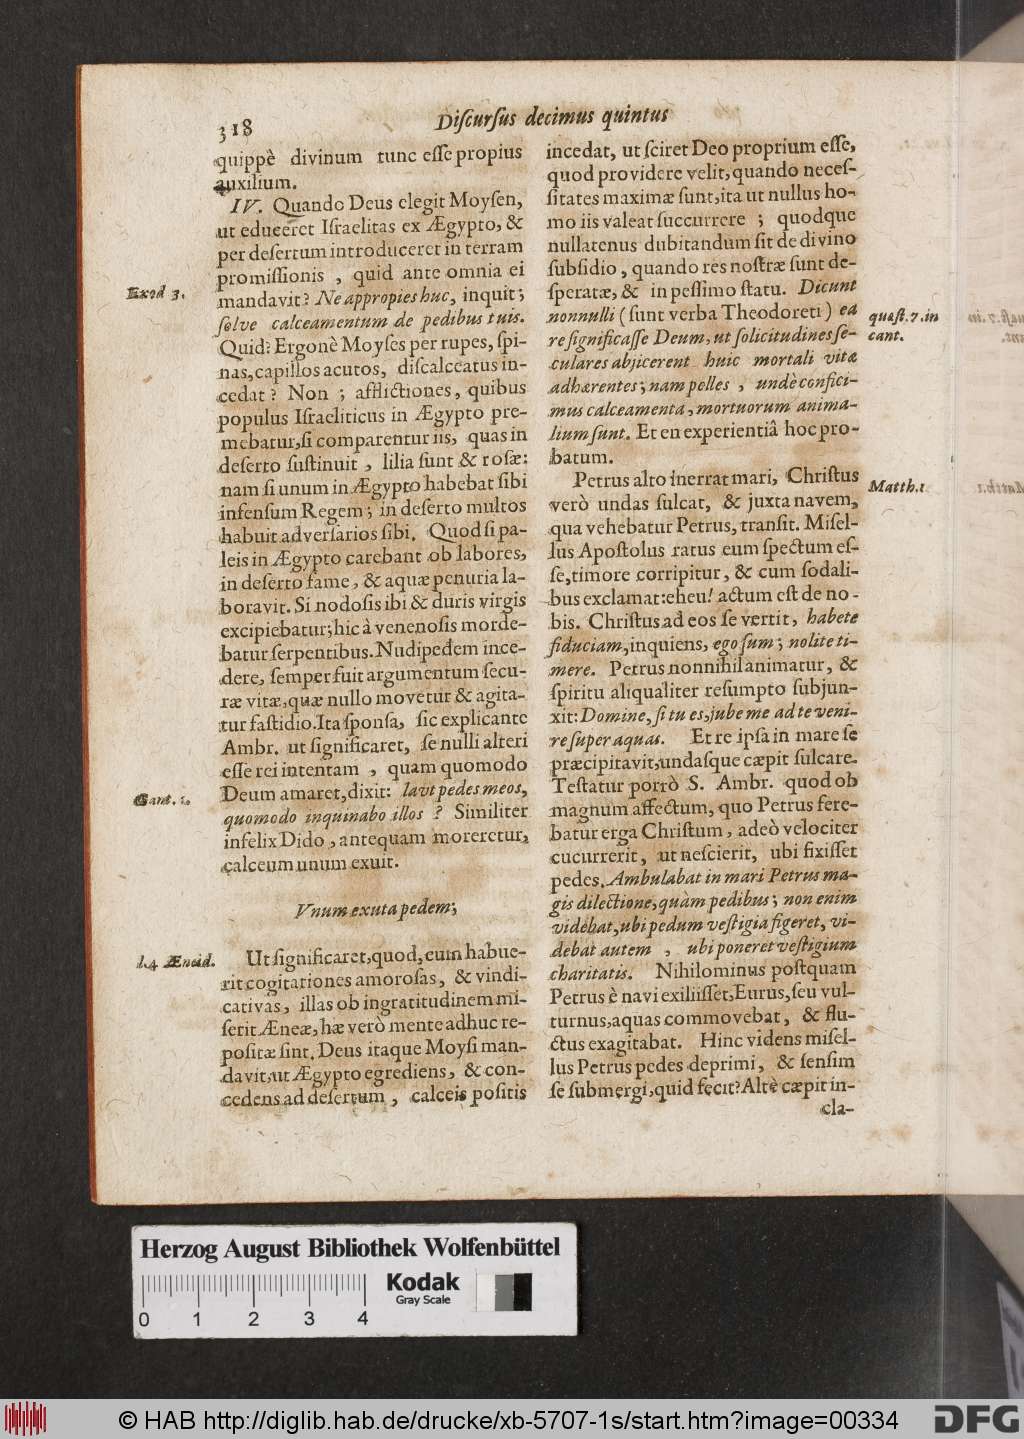 318
Discursus decimus quintus
quippè divinum tunc esse propius
auxilium.
IV. Quando Deus elegit Moysen,
ut educeret Israelitas ex Ægypto, &
per desertum introduceret in terram
promissionis , quid ante omnia ei
mandavit? Ne appropies huc, inquit;
solve calceamentum de pedibus tuis.
Quid? Ergonè Moyses per rupes, spi-
nas, capillos acutos, discalceatus in-
cedat ? Non ; afflictiones, quibus
populus Israeliticus in Ægypto pre-
mebatur, si comparentur iis, quas in
deserto sustinuit , lilia sunt & rosæ:
nam si unum in Ægypto habebat sibi
infensum Regem; in deserto multos
habuit adversarios sibi. Quod si pa-
leis in Ægypto carebant ob labores,
in deserto fame, & aquæ penuria la-
boravit. Si nodosis ibi & duris virgis
excipiebatur; hic à venenosis morde-
batur serpentibus. Nudipedem ince-
dere, semper fuit argumentum secu-
ræ vitæ, quæ nullo movetur & agita-
tur fastidio. Ita sponsa, sic explicante
Ambr. ut significaret, se nulli alteri
esse rei intentam , quam quomodo
Deum amaret, dixit: lavi pedes meos,
quomodo inquinabo illos ? Similiter
infelix Dido , antequam moreretur,
calceum unum exuit.
Vnum exuta pedem;
Ut significaret, quod, cum habue-
rit cogitationes amorosas, & vindi-
cativas, illas ob ingratitudinem mi-
serit Æneæ, hæ verò mente adhuc re-
positæ sint. Deus itaque Moysi man-
davit, ut Ægypto egrediens, & con-
cedens ad desertum , calceis positis
Exod 3.
Cant. 5.
l. 4 Æneid.
incedat, ut sciret Deo proprium esse,
quod providere velit, quando neces-
sitates maximæ sunt, ita ut nullus ho-
mo iis valeat succurrere ; quodque
nullatenus dubitandum sit de divino
subsidio, quando res nostræ sunt de-
speratæ, & in pessimo statu. Dicunt
nonnulli (sunt verba Theodoreti) ea
re significasse Deum, ut solicitudines se-
culares abjicerent huic mortali vitæ
adhærentes; nam pelles , undè confici-
mus calceamenta, mortuorum anima-
lium sunt. Et en experientiâ hoc pro-
batum.
Petrus alto inerrat mari, Christus
verò undas sulcat, & juxta navem,
qua vehebatur Petrus, transit. Misel-
lus Apostolus ratus eum spectum es-
se, timore corripitur, & cum sodali-
bus exclamat: eheu! actum est de no-
bis. Christus ad eos se vertit, habete
fiduciam, inquiens, ego sum; nolite ti-
mere. Petrus nonnihil animatur, &
spiritu aliqualiter resumpto subjun-
xit: Domine, si tu es, jube me ad te veni-
re super aquas. Et re ipsa in mare se
præcipitavit, undasque cæpit sulcare.
Testatur porrò S. Ambr. quod ob
magnum affectum, quo Petrus fere-
batur erga Christum, adeò velociter
cucurrerit, ut nescierit, ubi fixisset
pedes. Ambulabat in mari Petrus ma-
gis dilectione, quam pedibus; non enim
videbat, ubi pedum vestigia figeret, vi-
debat autem , ubi poneret vestigium
charitatis. Nihilominus postquam
Petrus è navi exiliisset, Eurus, seu vul-
turnus, aquas commovebat, & flu-
ctus exagitabat. Hinc videns misel-
lus Petrus pedes deprimi, & sensim
se submergi, quid fecit? Altè cæpit in-
cla-
quæst. 7. in
cant.
Matth. 1
Herzog August Bibliothek Wolfenbüttel
0 1 2 3 4
Kodak
Gray Scale
© HAB http://diglib.hab.de/drucke/xb-5707-1s/start.htm?image=00334
DFG